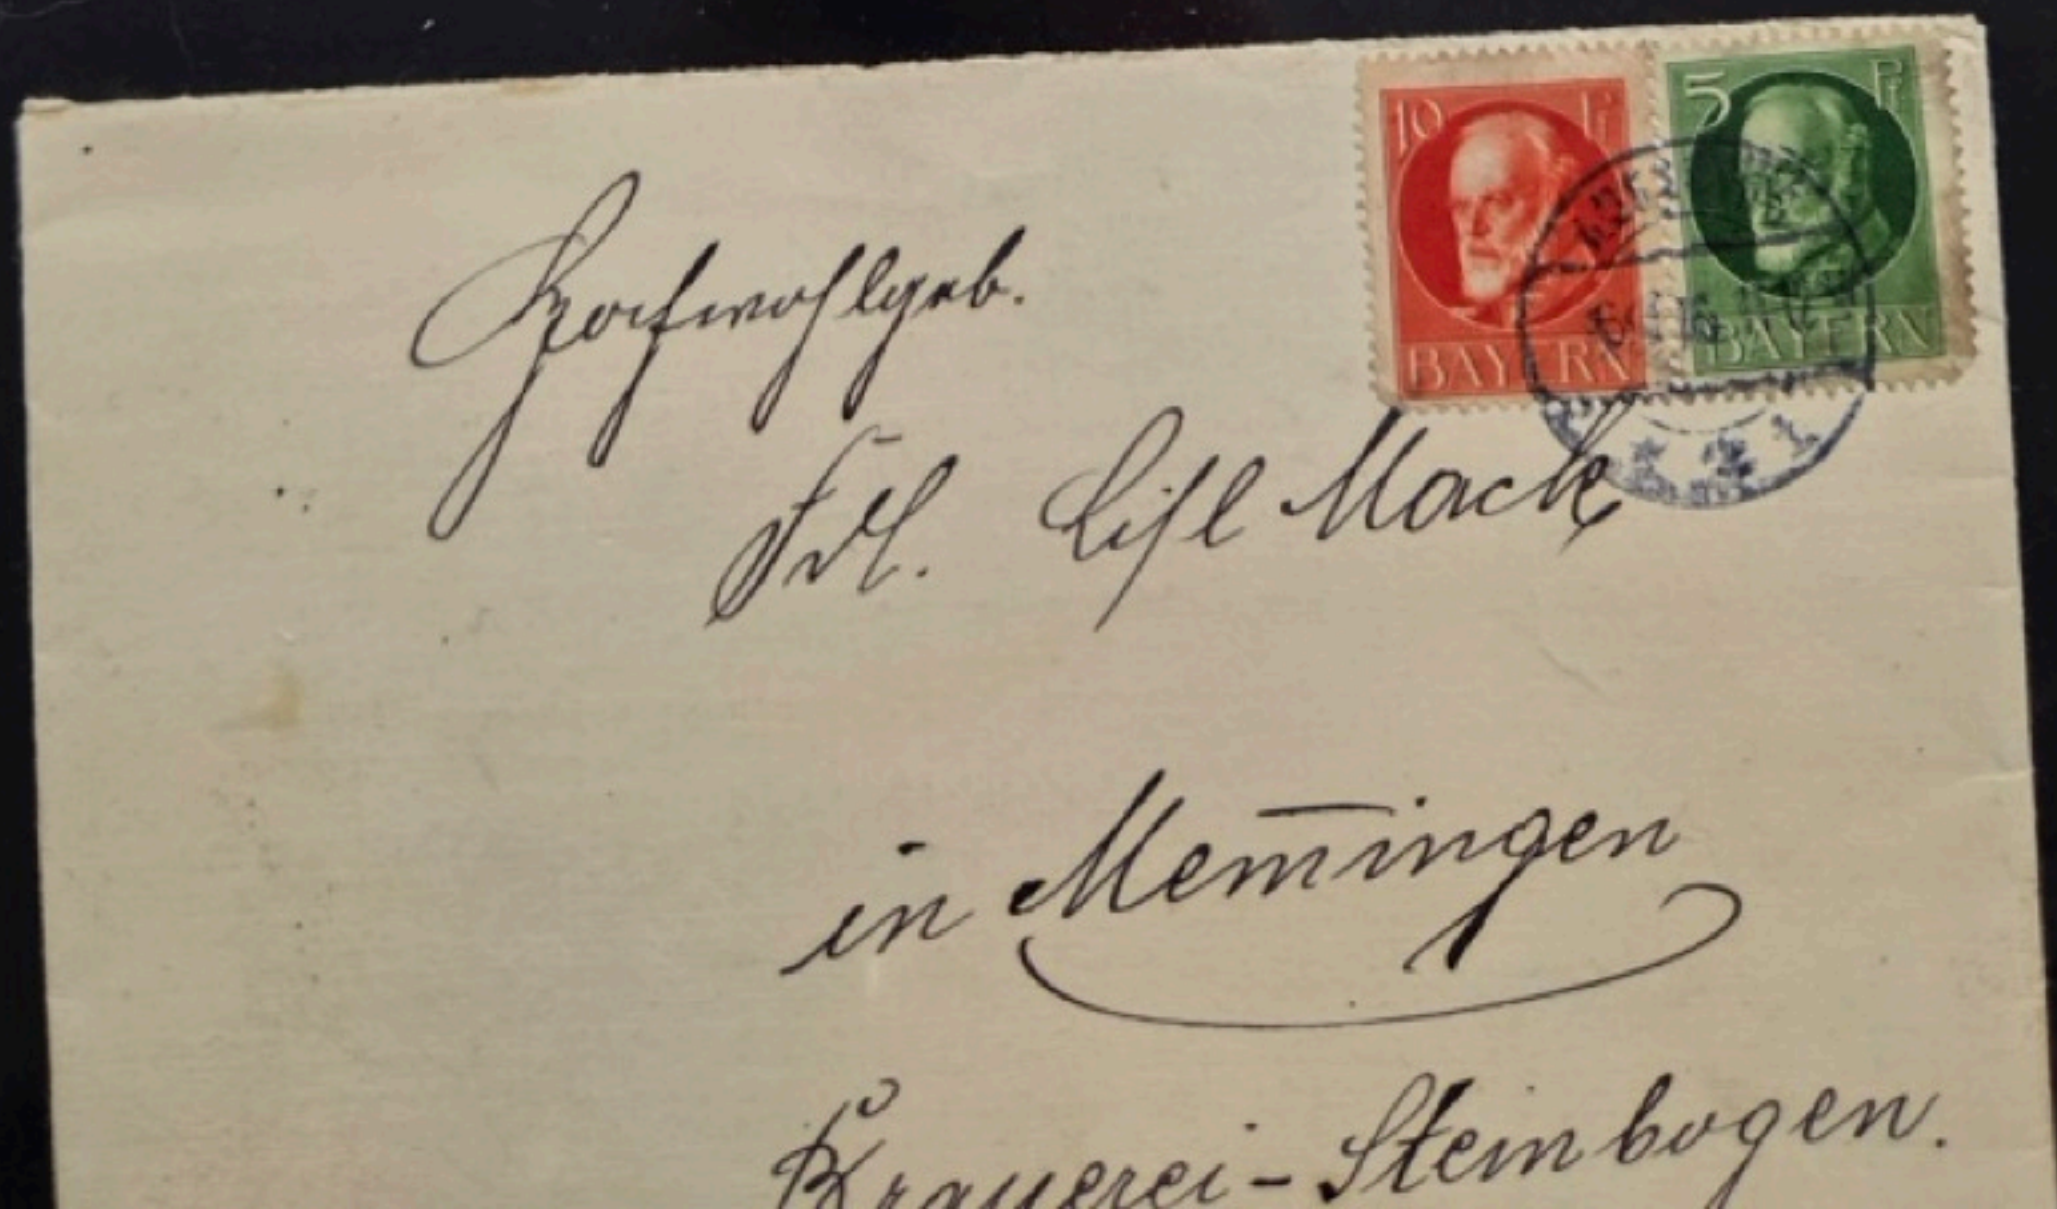 10 Pf
BAYERN
5 Pf
BAYERN
Hochwohlgeb.
Frl. Lisl Mack
in Mem̄ingen
Brauerei-Steinbogen.